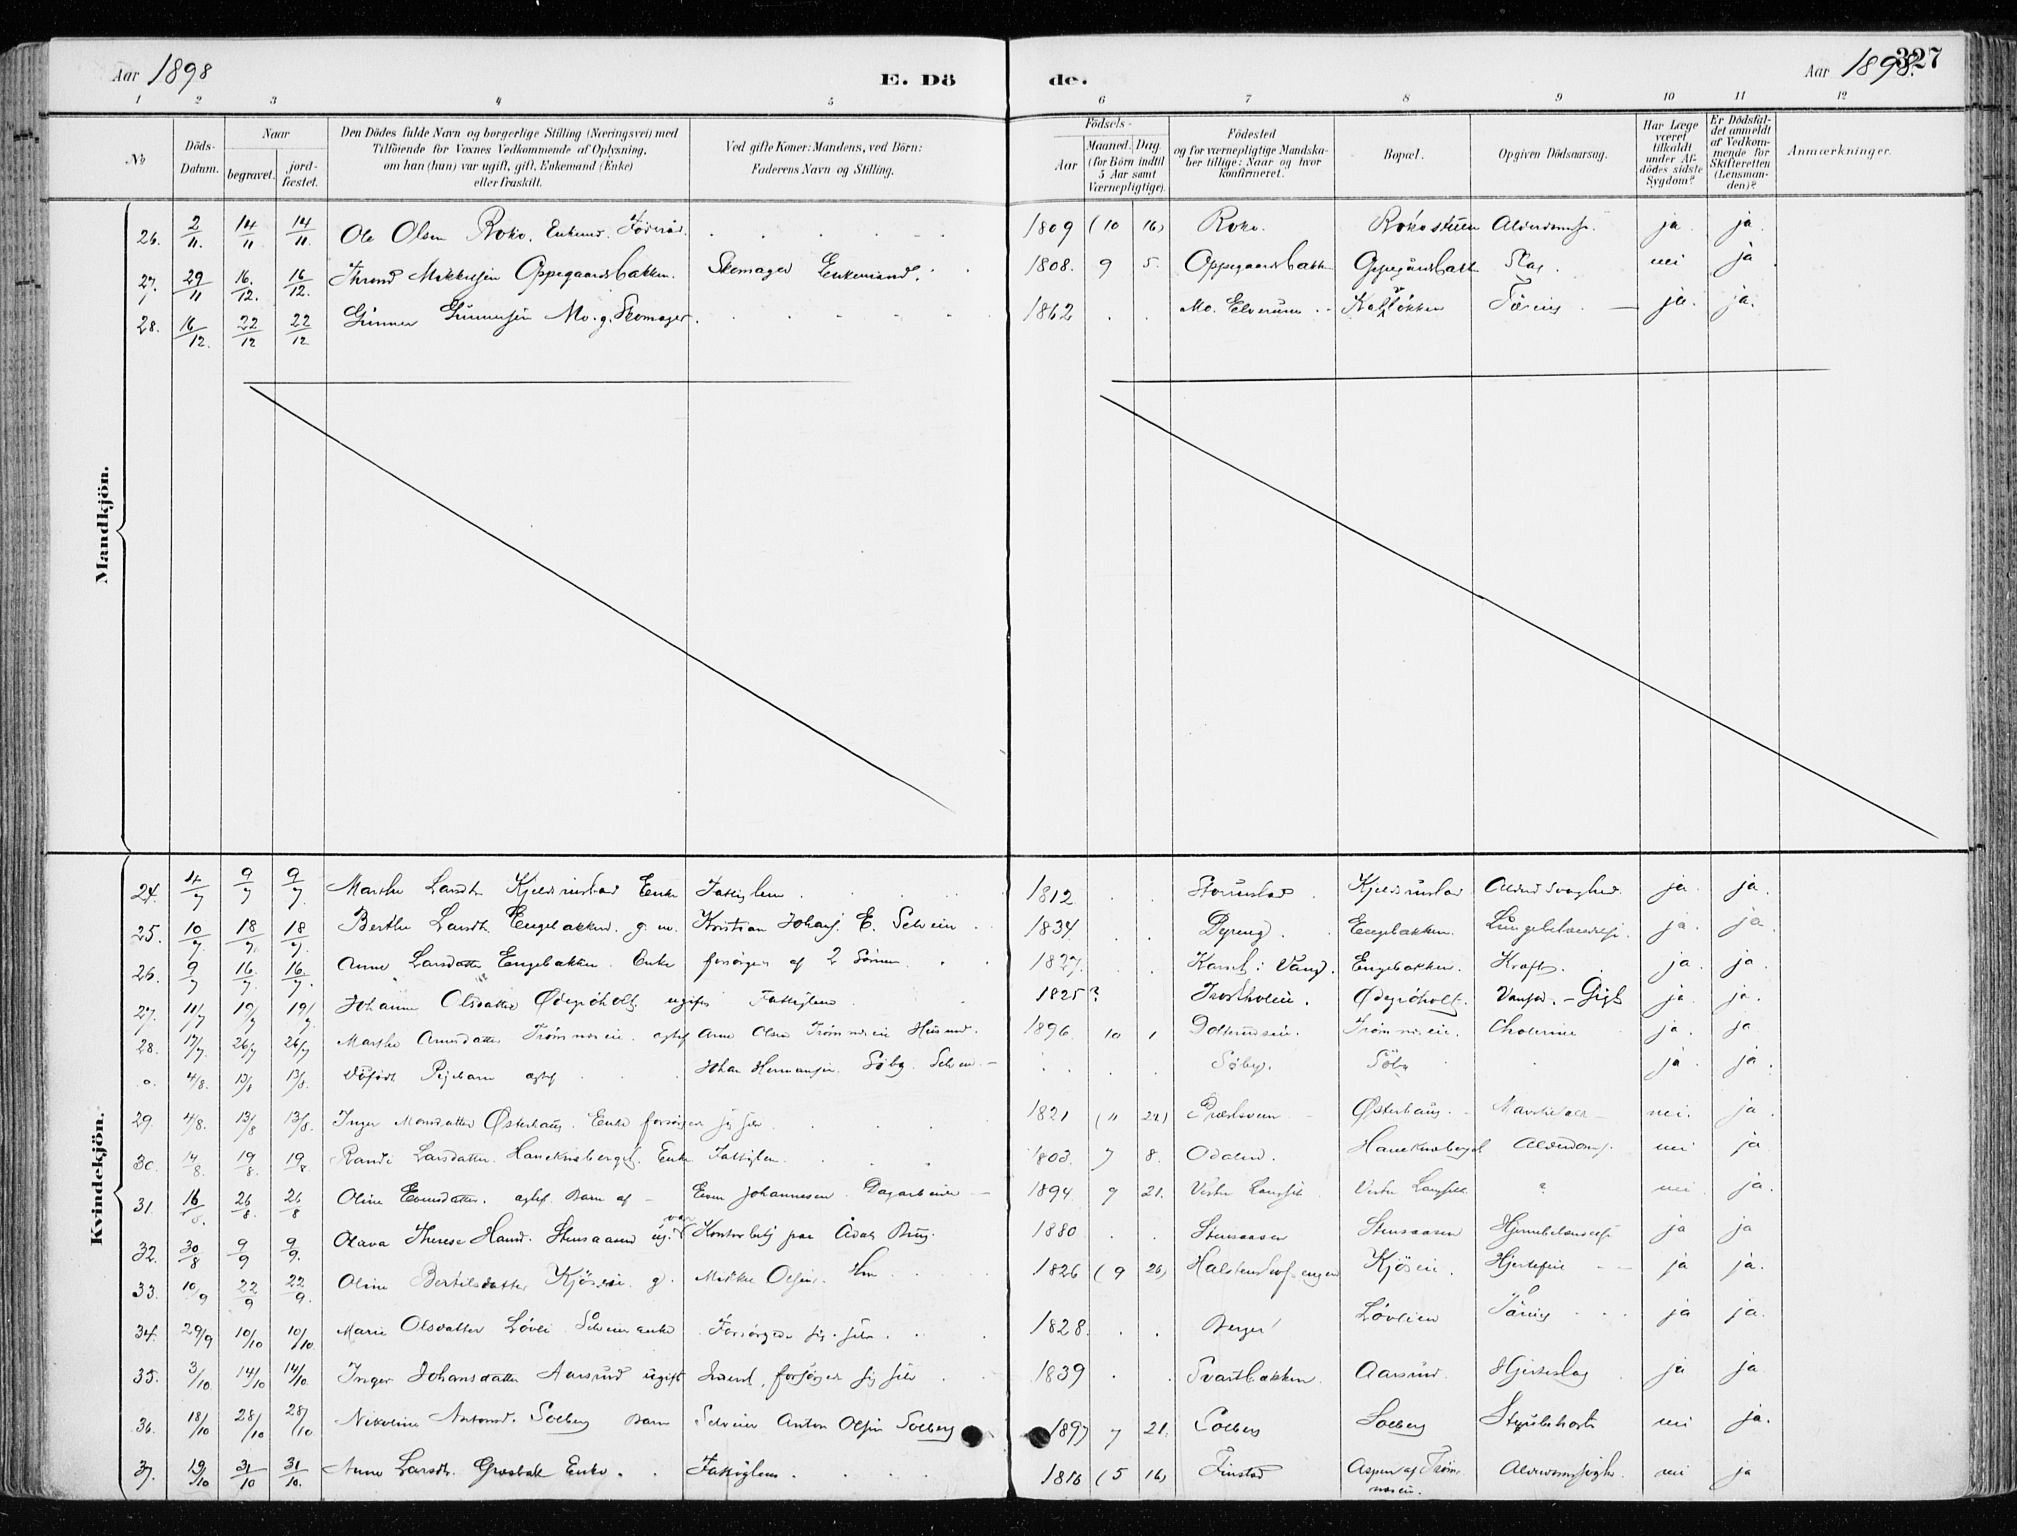 Aar 1898 E. Dö
de. Aar 1898. 327
1 2 3 4 5 6 7 8 9 10 11 12
No
Döds-Datum.
Naar
begravet.
jordfæstet.
Den Dödes fulde Navn og borgerlige Stilling (Næringsvei) med
Tilföiende for Voxnes Vedkommende af Oplysning,
om han (hun) var ugift, gift, Enkemand (Enke)
eller fraskilt.
Ved gifte Koner: Mandens, ved Börn:
Faderens Navn og Stilling.
Födsels-
Aar
Maaned. Dag.
(for Börn indtil
5 Aar samt
Værnepligtige).
Födested
og for værnepligtige Mandska-
ber tillige: Naar og hvor
konfirmeret.
Bopæl.
Opgiven Dödsaarsag.
Har Læge
været
tilkaldt
under Af-
dödes sidste
Sygdom?
Er Dödsfal-
det anmeldt
af Vedkom-
mende for
Skifteretten
(Lensman-
den)?
Anmærkninger.
Mandkjön.
26. 2/11. 14/11 14/11. Ole Olsen Roko. Enkemd. Föderåd. 1809 (10 16) Roko. Rokostuen ja. ja.
27. 29/11 16/12. 16/12. Thrond Mikkelsen Oppegaardsbakken. Skomager Enkemand. 1808. 9 5. Oppegaardsbakken Slag. nei ja
28. 16/12. 22/12 22/12 Gunner Gunnersen Mo. g. Skomager. 1862 Mo. Elverum. Tæring ja. ja.
Kvindekjön.
24. 4/7 9/7 9/7. Marthe Larsdtr Kjeldsrustad Enke Fattiglem. 1812 Storustad Kjeldsrustad Alderd Svaghed. ja ja.
25. 10/7. 18/7. 18/7. Berthe Larsdt. Engebakken. g. m. Kristian Johans. E. Selveier 1834. Dyreng. Engebakken. Lungebetændelse. ja. ja.
26. 9/7 16/7. 16/7. Anne Larsdatter Engebakken. Enke forsörges af 2 Sönner. 1827. Karset i Vang. Engebakken. Kræft. ja. ja.
27. 11/7 19/7 19/7. Johanne Olsdatter Ødegröholt. ugift Fattiglem. 1825? Ødegröholt. - Gigt ja ja.
28. 17/7. 26/7 26/7 Marthe Arnesdatter Trömnæseie. agtef Arne Olsen Trömnæseie Husmd. 1896. 10 1 Trömnæseie. Cholerine ja. ja
o. 4/8. 13/8 13/8. Dödfödt Pigebarn agtef Johan Hermansen Söby. Selveier Söby. Söby ja ja.
29. 4/8. 13/8 13/8. Inger Monsdatter Østerhaug. Enke forsörger sig selv. 1821 (11 22) Præstsveen Østerhaug. nei. ja.
30. 14/8. 19/8. 19/8. Randi Larsdatter. Haneknæberget. Enke Fattiglem. 1803. 7 8. Odalen. Haneknæberget Alderdoms. nei ja
31. 16/8. 26/8. 26/8 Oline Evensdatter. agtef. Barn af - Even Johannesen Dagarbeider 1894. 9 21. Vestre Langset Vestre Langset. ? nei ja.
32. 30/8 9/9 9/9. Olava Therese Hansd. Stensaasen ug. var Kontorbetj paa Aadals Brug. 1880 Stensaasen Stensaasen Hjernebetændelse ja ja
33. 10/9 22/9 22/9. Oline Bertilsdatter Kjöseie. g. Mikkel Olsen. 1826 (9 26) Kjöseie. Hjertefeil ja ja.
34. 29/9 10/10 10/10 Marie Olsdatter Lövli Selveierenke Forsörgede sig selv. 1828. Berger Lövlien Tæring ja ja.
35. 3/10 14/10 14/10. Inger Johansdatter Aarsrud ugift Inderst, forsörger sig selv 1839 Svartbakken. Aarsrud. Hjerteslag ja ja.
36. 18/10 28/10 28/10 Nikoline Antonsd. Solberg Barn Selveier Anton Olsen Solberg 1897 7 21. Solberg Solberg Strubehoste nei ja.
37. 19/10 31/10 31/10. Anne Larsdtr. Græsbak Enke. Fattiglem. 1816 (5 16) Finstad Aspen af Trömnæseie. nei ja